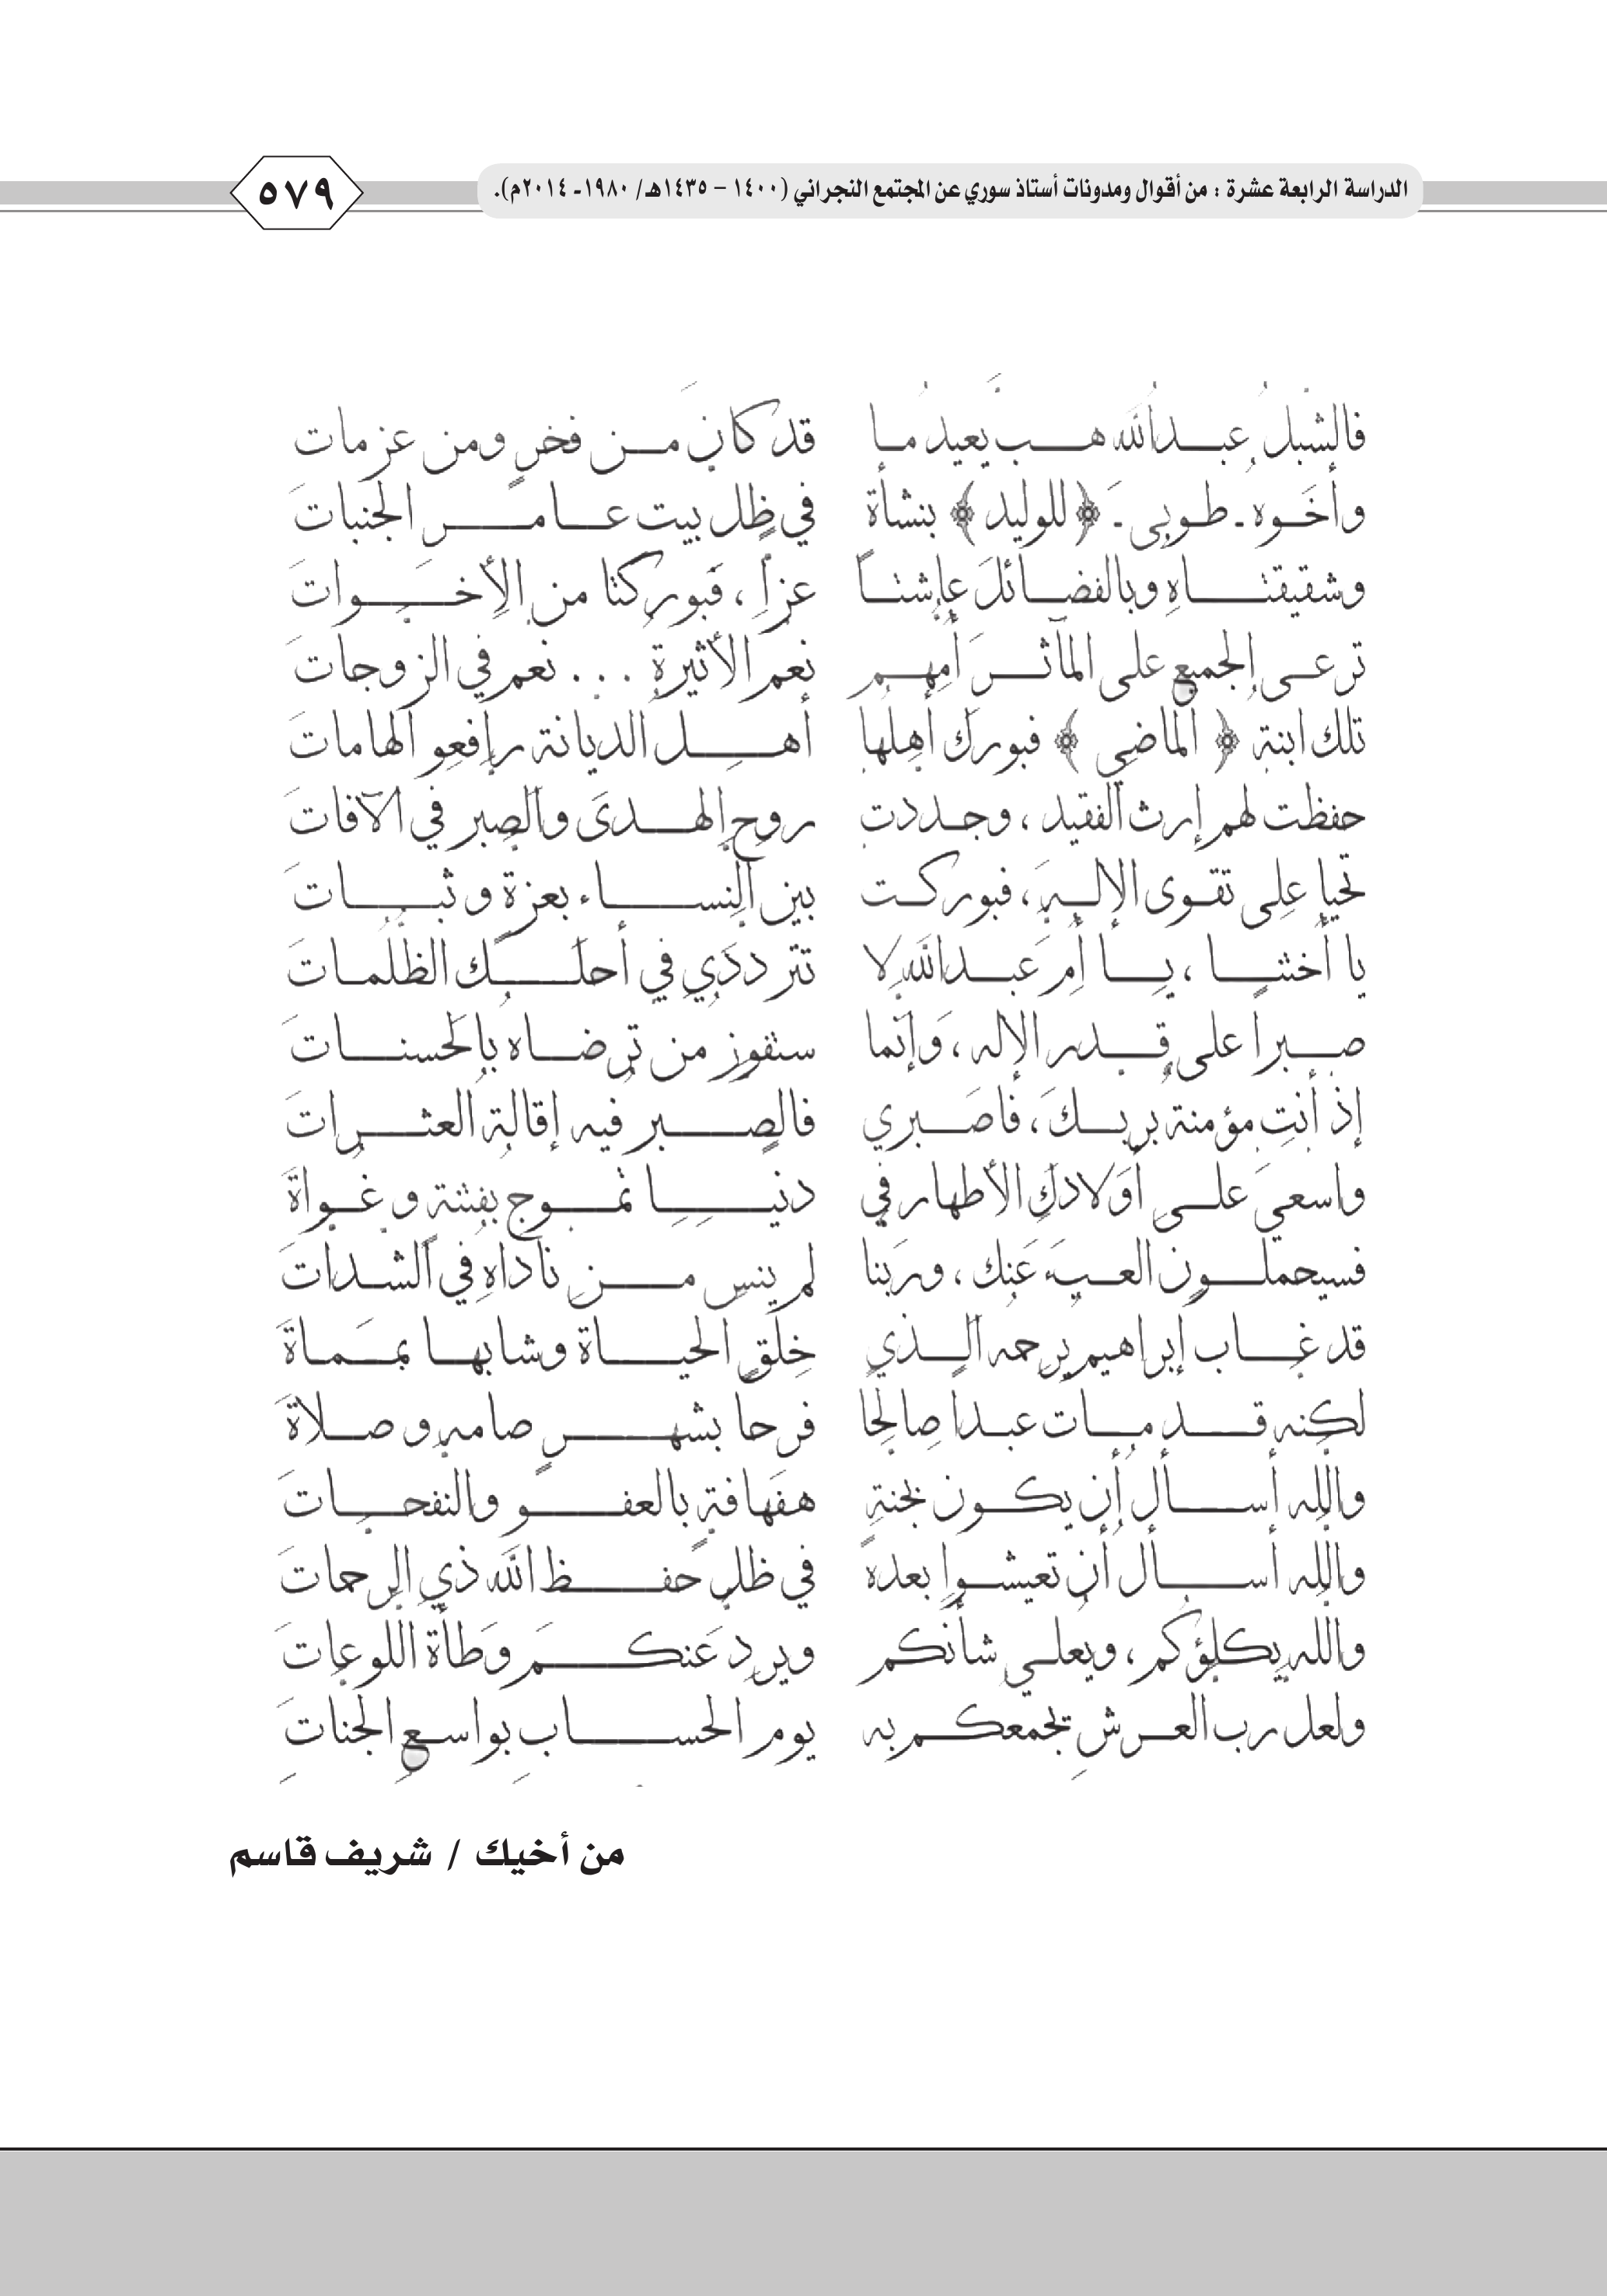 الدراسة الرابعة عشرة : من أقوال ومدونات أستاذ سوري عن المجتمع النجراني (١٤٠٠ – ١٤٣٥هـ/ ١٩٨٠ـ ٢٠١٤م).
٥٧٩
فالشبلُ عبدالله هب يعيد ما قد كان من فخرٍ ومن عزمات
وأخوه ـ طوبى ـ ﴿للوليد﴾ بنشأة في ظل بيت عامر الجنبات
وشقيقتاه وبالفضائل عاشتا عزاً ، فبوركتا من الأخوات
ترعى الجميع على المآثر أمهم نعم الأثيرة ... نعم في الزوجات
تلك ابنة ﴿الماضي﴾ فبورك أهلها أهل الديانة رافعو الهامات
حفظت لهم إرث الفقيد ، وجددت روح الهدى والصبر في الآفات
تحيا على تقوى الإله ، فبوركت بين النساء بعزة و ثبات
يا أختنا ، يا أم عبدالله لا تترددي في أحلك الظلمات
صبراً على قدر الإله ، وإنما ستفوز من ترضاه بالحسنات
إذ أنتِ مؤمنة بربك ، فاصبري فالصبر فيه إقالة العثرات
واسعي على أولادكِ الأطهار في دنيا تموج بفتنة و غواة
فسيحملون العبء عنك ، وربنا لم ينس من ناداه في الشدات
قد غاب إبراهيم يرحمه الذي خلق الحياة وشابها بممات
لكنه قد مات عبداً صالحاً فرحا بشهر صامه و صلاة
والله أسأل أن يكون بجنةٍ هفهافة بالعفو والنفحات
والله أسأل أن تعيشوا بعده في ظل حفظ الله ذي الرحمات
والله يكلؤكم ، ويعلي شأنكم ويرد عنكم وطأة اللوعات
ولعل رب العرش يجمعكم به يوم الحساب بواسع الجنات
من أخيك / شريف قاسم